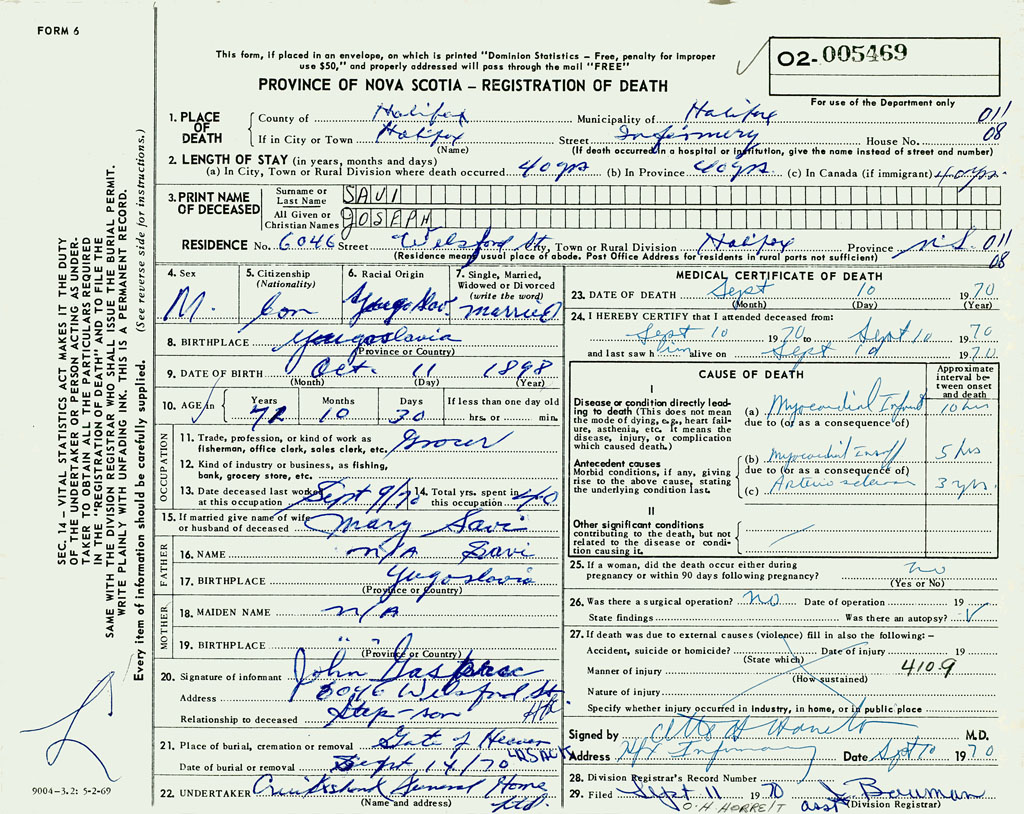 FORM 6
This form, if placed in an envelope, on which is printed "Dominion Statistics - Free, penalty for improper
use $50," and properly addressed will pass through the mail "FREE"
02-005469
For use of the Department only
PROVINCE OF NOVA SCOTIA - REGISTRATION OF DEATH
1. PLACE OF DEATH
County of Halifax Municipality of Halifax 011
If in City or Town Halifax Street Infirmery House No. 08
(Name) (If death occurred in a hospital or institution, give the name instead of street and number)
2. LENGTH OF STAY (in years, months and days)
(a) In City, Town or Rural Division where death occurred 40 yrs (b) In Province 40 yrs (c) In Canada (if immigrant) 40 yrs.
3. PRINT NAME OF DECEASED
Surname or Last Name SAVI
All Given or Christian Names JOSEPH
RESIDENCE No. 6046 Street Welsford St City, Town or Rural Division Halifax Province N.S. 011
(Residence means usual place of abode. Post Office Address for residents in rural parts not sufficient) 08
4. Sex M.
5. Citizenship (Nationality) Can
6. Racial Origin Yougoslav
7. Single, Married, Widowed or Divorced (write the word) married
8. BIRTHPLACE Yougoslavia
(Province or Country)
9. DATE OF BIRTH Oct. 11 1898
(Month) (Day) (Year)
10. AGE in Years Months Days If less than one day old
72 10 30 hrs. or min.
OCCUPATION
11. Trade, profession, or kind of work as fisherman, office clerk, sales clerk, etc. Grocer
12. Kind of industry or business, as fishing, bank, grocery store, etc.
13. Date deceased last worked at this occupation Sept 9/70 14. Total yrs. spent in this occupation 40
15. If married give name of wife or husband of deceased Mary Savi
FATHER
16. NAME n/A Savi
17. BIRTHPLACE Yugoslavia
(Province or Country)
MOTHER
18. MAIDEN NAME n/A
19. BIRTHPLACE " "
(Province or Country)
20. Signature of informant John
Address 6046 Welsford St Hfx
Relationship to deceased Step-son
21. Place of burial, cremation or removal Gate of Heaven
Date of burial or removal Sept 14/70
22. UNDERTAKER Cruikshank Funeral Home Ltd.
(Name and address)
MEDICAL CERTIFICATE OF DEATH
23. DATE OF DEATH Sept 10 1970
(Month) (Day) (Year)
24. I HEREBY CERTIFY that I attended deceased from:
Sept 10 1970 to Sept 10 1970
and last saw him alive on Sept 10 1970
CAUSE OF DEATH
Approximate interval between onset and death
I
Disease or condition directly leading to death (This does not mean the mode of dying, e.g., heart failure, asthenia, etc. It means the disease, injury, or complication which caused death.)
(a) Myocardial Infarct 10 hrs
due to (or as a consequence of)
Antecedent causes
Morbid conditions, if any, giving rise to the above cause, stating the underlying condition last.
(b) Myocardial Insuff 5 hrs
due to (or as a consequence of)
(c) Arteriosclerosis 3 yrs.
II
Other significant conditions contributing to the death, but not related to the disease or condition causing it.
25. If a woman, did the death occur either during pregnancy or within 90 days following pregnancy? no
(Yes or No)
26. Was there a surgical operation? no Date of operation 19
State findings Was there an autopsy?
27. If death was due to external causes (violence) fill in also the following:-
Accident, suicide or homicide? Date of injury 19
(State which)
Manner of injury 4109
(How sustained)
Nature of injury
Specify whether injury occurred in industry, in home, or in public place
Signed by M.D.
Address Hfx Infirmary Date Sept 10 1970
28. Division Registrar's Record Number
29. Filed Sept 11 1970 J Bauman
O.H. HORRELT asst (Division Registrar)
SEC. 14 - VITAL STATISTICS ACT MAKES IT THE DUTY
OF THE UNDERTAKER OR PERSON ACTING AS UNDER-
TAKER TO OBTAIN ALL THE PARTICULARS REQUIRED
IN THE "REGISTRATION OF DEATH" AND TO FILE THE
SAME WITH THE DIVISION REGISTRAR WHO SHALL ISSUE THE BURIAL PERMIT.
WRITE PLAINLY WITH UNFADING INK. THIS IS A PERMANENT RECORD.
Every item of information should be carefully supplied. (See reverse side for instructions.)
9004-3.2: 5-2-69